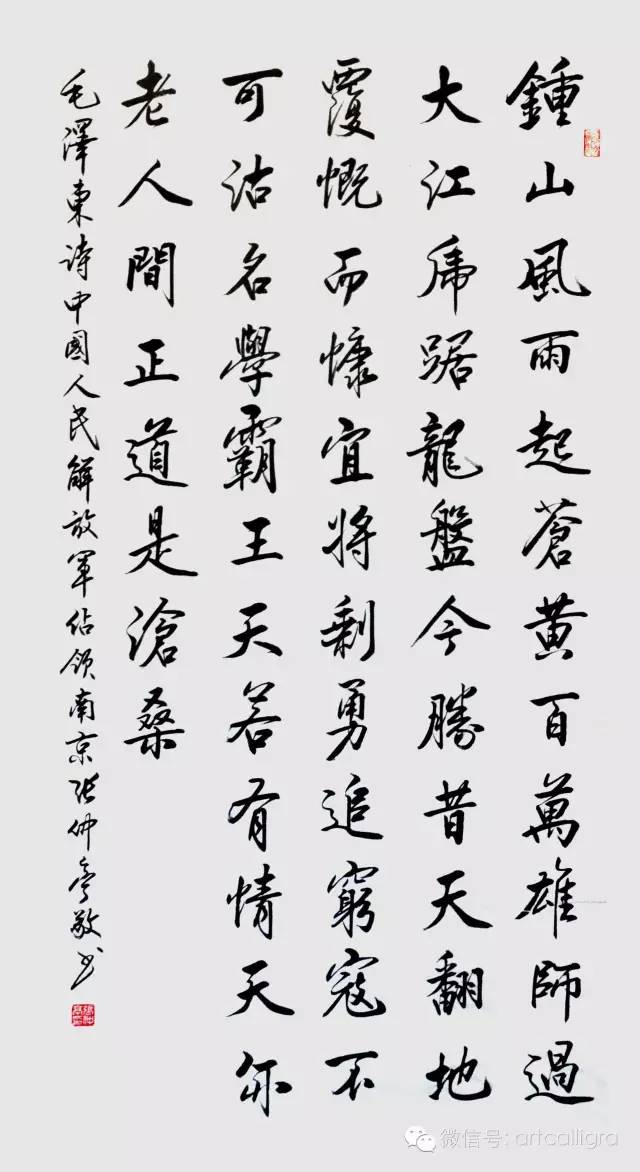 鍾山風雨起蒼黄百萬雄師過
大江虎踞龍盤今勝昔天翻地
覆慨而慷宜將剩勇追窮寇不
可沽名學霸王天若有情天亦
老人間正道是滄桑
毛澤東詩中國人民解放軍佔領南京張仲亭敬书
微信号: artcalligra